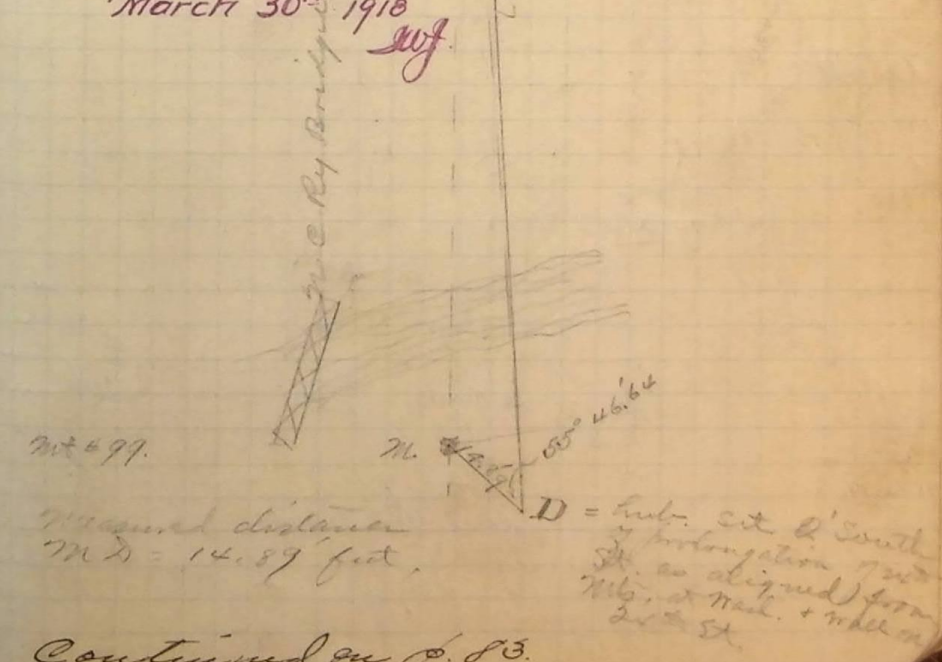 March 30th 1918
SWJ
N. C. Ry Bridge
55° 46.64'
Mt # 99.
M.
14.89
D = hub. set @ South
prolongation
St. as aligned from
Mts. at Nash. + Mall on
St.
Measured distance
M D = 14.89' feet.
Continued on p. 83.